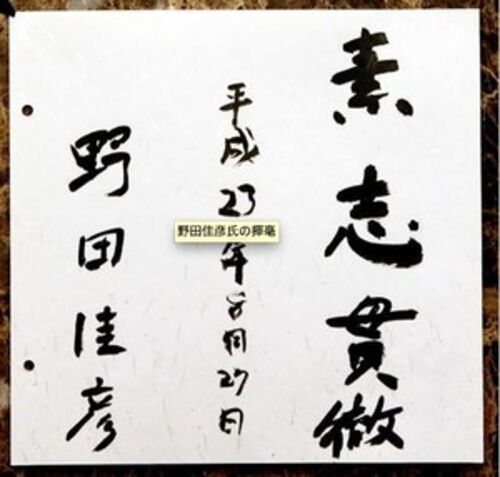 素志貫徹
平成23年8月27日
野田佳彦氏の揮毫
野田佳彦